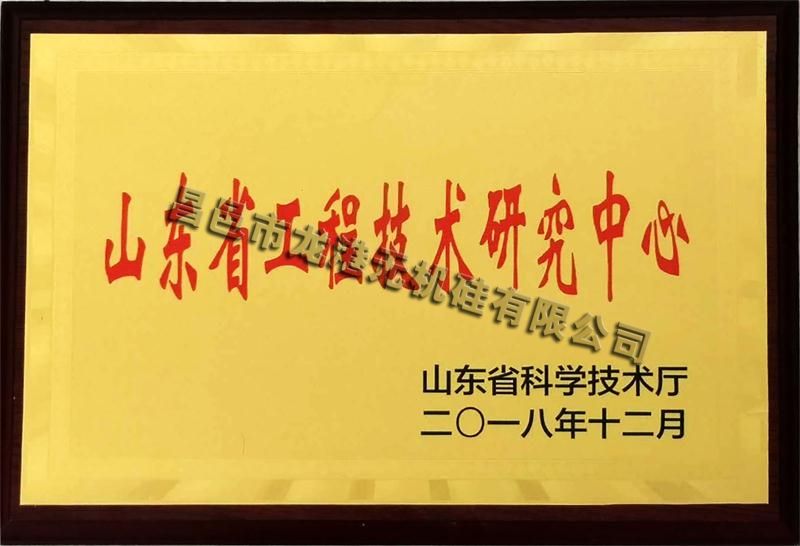 山东省工程技术研究中心
昌邑市龙港无机硅有限公司
山东省科学技术厅
二〇一八年十二月